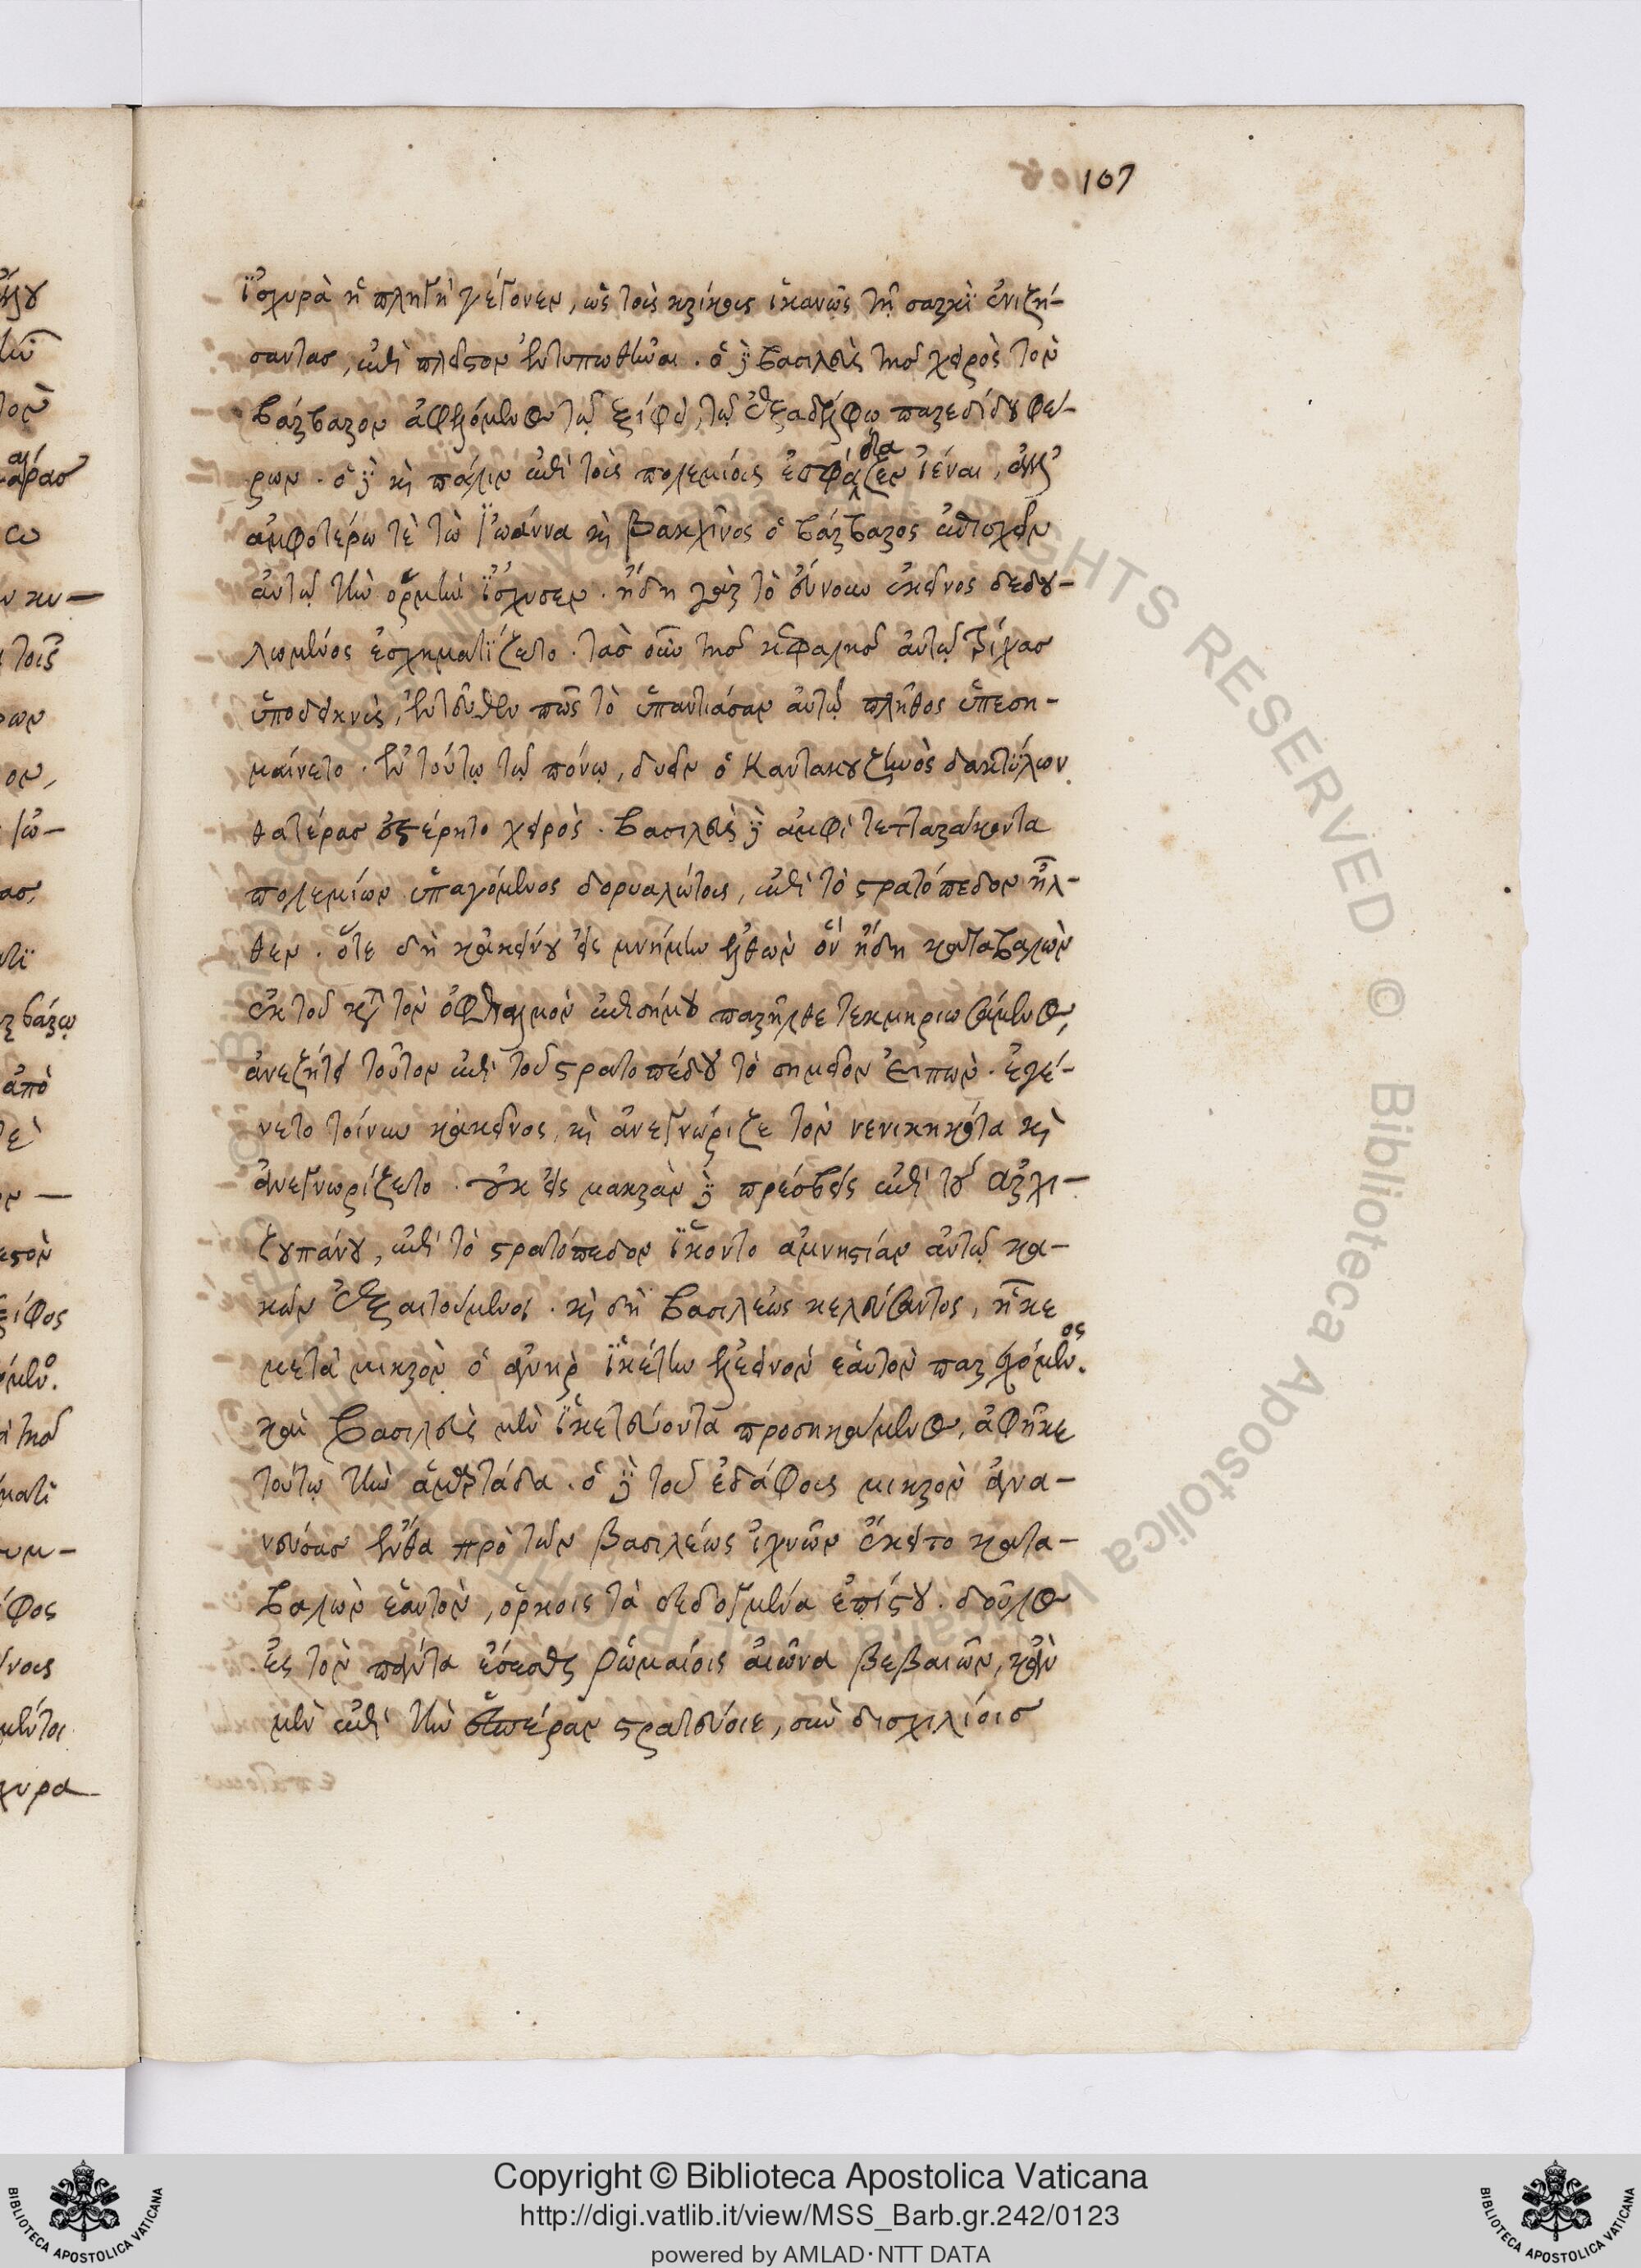 107
ἰσχυρὰ ἡ πληγὴ γέγονεν, ὡς τοὺς κρίκους ἱκανῶς τῇ σαρκὶ ἐνιζή-
σαντας, ἐπὶ πλεῖστον ἐντυπωθῆναι. ὁ δὲ βασιλεὺς τῆς χειρὸς τὸν
βάρβαρον ἀφελόμενος τῷ ξίφει, τῷ ἐξαδέλφῳ παρεδίδου φέ-
ρων. ὁ δὲ καὶ πάλιν ἐπὶ τοὺς πολεμίους ἐσφάδαζεν ἰέναι, ἀλλ'
ἀμφοτέρω τὲ τὼ Ἰωάννα καὶ Βακχῖνος ὁ βάρβαρος ἐπισχεῖν
αὐτῷ τὴν ὁρμὴν ἴσχυσεν. ἤδη γὰρ τὸ εὔνουν ἐκεῖνος δεδου-
λωμένος ἐσχηματίζετο. τὰς οὖν τῆς κεφαλῆς αὐτῷ τρίχας
ὑποδεικνὺς, ἐντεῦθέν πως τὸ ὑπαντιάσαν αὐτῷ πλῆθος ὑπεση-
μαίνετο. ἐν τούτῳ τῷ πόνῳ, δυεῖν ὁ Καντακουζηνὸς δακτύλων
θατέρας ἐστέρητο χειρός. βασιλεὺς δὲ ἀμφὶ τετταράκοντα
πολεμίων ὑπαγόμενος δορυαλώτους, ἐπὶ τὸ στρατόπεδον ἦλ-
θεν. ὅτε δὴ κἀκείνου εἰς μνήμην ἐλθὼν ὃν ἤδη καταβαλὼν
ἐκ τοῦ κατὰ τὸν ὀφθαλμὸν ἐπισήμου παρῆλθε τεκμηριωσάμενος,
ἀνεζήτει τοῦτον ἐπὶ τοῦ στρατοπέδου τὸ σημεῖον εἰπών. ἐγέ-
νετο τοίνυν κἀκεῖνος, καὶ ἀνεγνώριζε τὸν νενικηκότα καὶ
ἀνεγνωρίζετο. οὐκ εἰς μακρὰν δὲ πρέσβεις ἐπὶ τοῦ ἀρχι-
ζουπάνου, ἐπὶ τὸ στρατόπεδον ἵκοντο ἀμνηστίαν αὐτῷ κα-
κῶν ἐξαιτούμενοι. καὶ δὴ βασιλέως κελεύσαντος, ἧκε
μετὰ μικρὸν ὁ ἀνὴρ ἱκέτην ἐλεεινὸν ἑαυτὸν παρεχόμενος.
καὶ βασιλεὺς μὲν ἱκετεύοντα προσηκάμενος, ἀφῆκε
τούτῳ τὴν ἁμαρτάδα. ὁ δὲ τοῦ ἐδάφους μικρὸν ἀνα-
νεύσας ἔνθα πρὸ τῶν βασιλέως ἰχνῶν ἔκειτο κατα-
βαλὼν ἑαυτὸν, ὅρκοις τὰ δεδογμένα ἐπίστου. δοῦλος
ἐς τὸν πάντα ἔσεσθαι ῥωμαίοις αἰῶνα βεβαιῶν, κἂν
μὲν ἐπὶ τὴν ἑσπέραν στρατεύοιε, σὺν δισχιλίοις